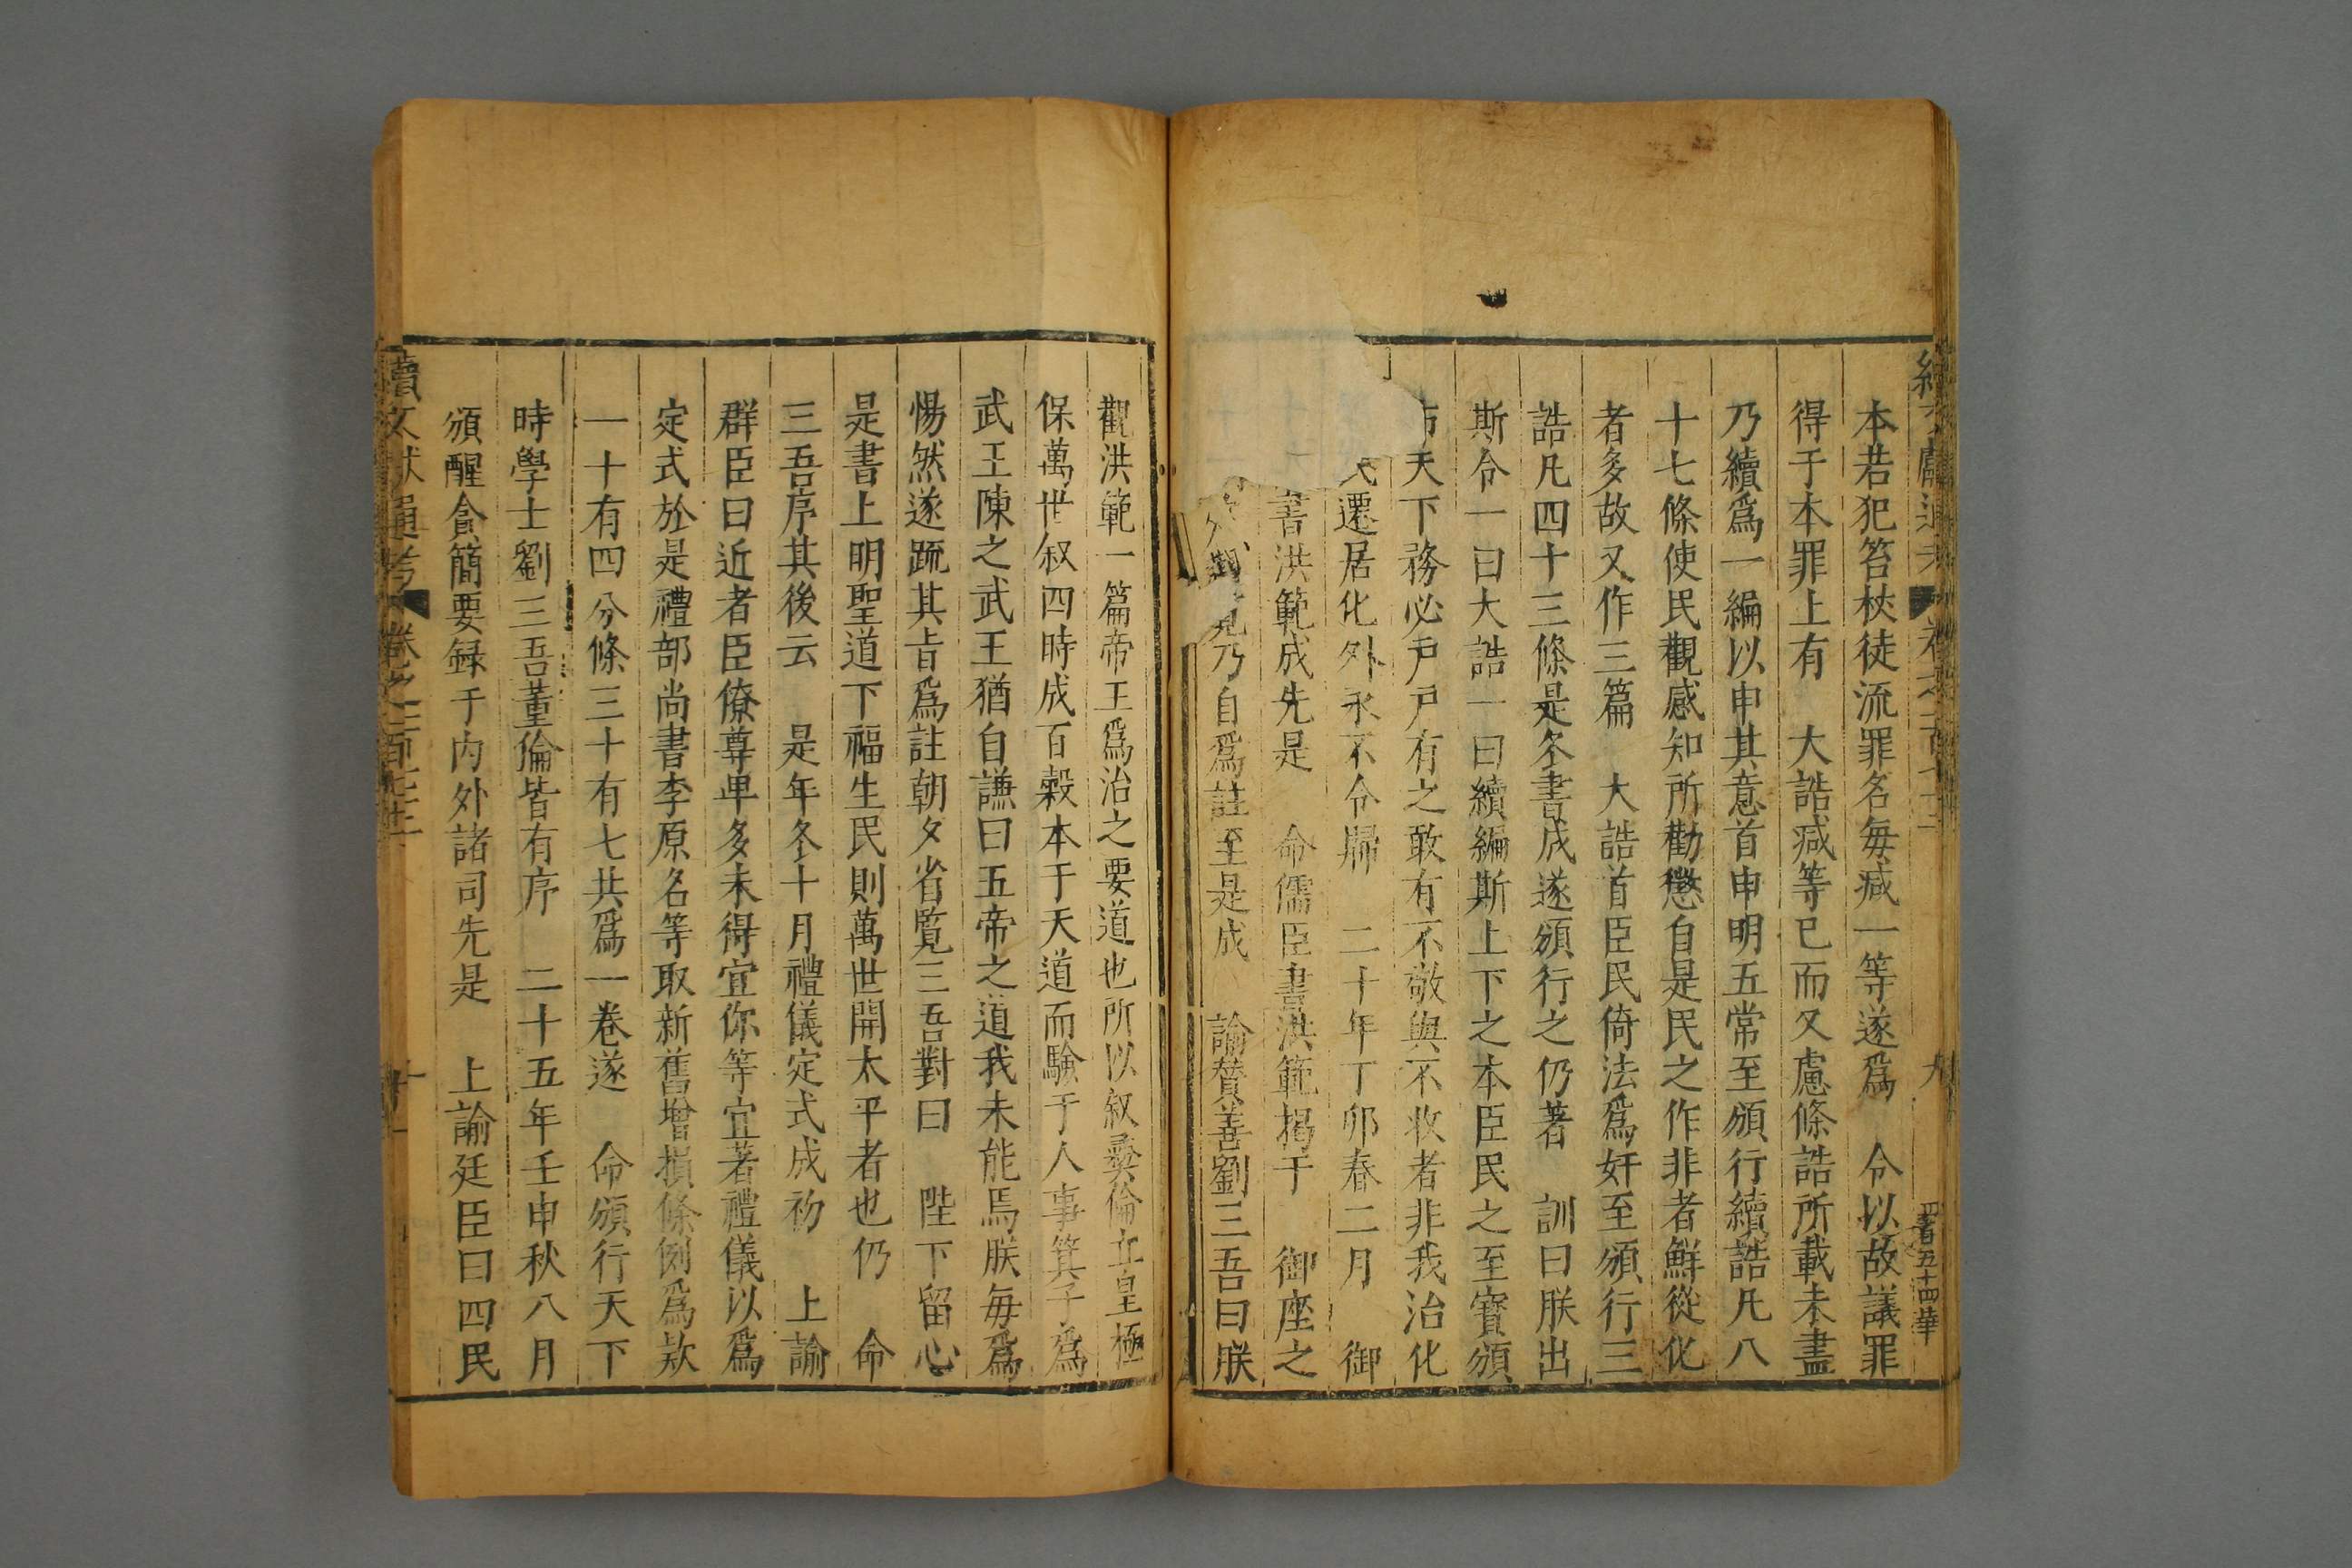 本若犯笞杖徒流罪名每减一等遂爲　令以故議罪
得于本罪上有　大誥减等已而又慮條誥所載未盡
乃續爲一編以申其意首申明五常至頒行續誥凡八
十七條使民觀感知所勸懲自是民之作非者鮮從化
者多故又作三篇　大誥首臣民倚法爲奸至頒行三
誥凡四十三條是冬書成遂頒行之仍著　訓曰朕出
斯令一曰大誥一曰續編斯上下之本臣民之至寳頒
天下務必戸戸有之敢有不敬與不收者非我治化
遷居化外永不令歸　二十年丁卯春二月　御
書洪範成先是　命儒臣書洪範揭于　御座之
乃自爲註至是成　諭賛善劉三吾曰朕
觀洪範一篇帝王爲治之要道也所以叙彛倫立皇極
保萬世叙四時成百穀本于天道而騐于人事箕子爲
武王陳之武王猶自謙曰五帝之道我未能焉朕每爲
惕然遂疏其旨爲註朝夕省覧三吾對曰　陛下留心
是書上明聖道下福生民則萬世開太平者也仍　命
三吾序其後云　是年冬十月禮儀定式成初　上諭
群臣曰近者臣僚尊卑多未得宜你等宜著禮儀以爲
定式於是禮部尚書李原名等取新舊增損條例爲欵
一十有四分條三十有七共爲一卷遂　命頒行天下
時學士劉三吾董倫皆有序　二十五年壬申秋八月
頒醒貪簡要録于内外諸司先是　上諭廷臣曰四民
續文獻通考　卷之一百七十